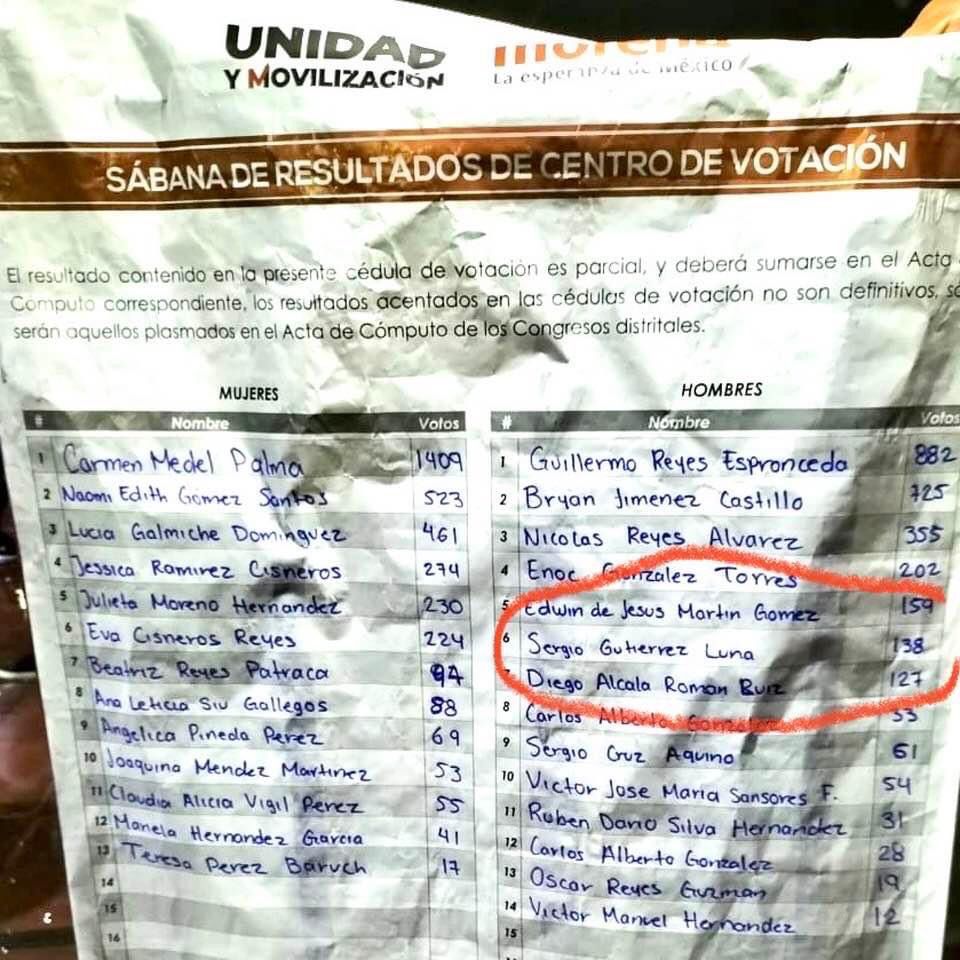 UNIDAD
Y MOVILIZACIÓN
morena
La esperanza de México
SÁBANA DE RESULTADOS DE CENTRO DE VOTACIÓN
El resultado contenido en la presente cédula de votación es parcial, y deberá sumarse en el Acta
Cómputo correspondiente, los resultados acentados en las cédulas de votación no son definitivos,
serán aquellos plasmados en el Acta de Cómputo de los Congresos distritales.
MUJERES
# Nombre Votos
1 Carmen Medel Palma 1409
2 Naomi Edith Gómez Santos 523
3 Lucia Galmiche Dominguez 461
4 Jessica Ramirez Cisneros 274
5 Julieta Moreno Hernandez 230
6 Eva Cisneros Reyes 224
7 Beatriz Reyes Patraca 94
8 Ana Leticia Siu Gallegos 88
9 Angelica Pineda Perez 69
10 Joaquina Mendez Martinez 53
11 Claudia Alicia Vigil Perez 55
12 Manela Hernandez Garcia 41
13 Teresa Perez Baruch 17
14
15
16
HOMBRES
# Nombre Votos
1 Guillermo Reyes Espronceda 882
2 Bryan Jimenez Castillo 725
3 Nicolas Reyes Alvarez 355
4 Enoc Gonzalez Torres 202
5 Edwin de Jesus Martin Gomez 159
6 Sergio Gutierrez Luna 138
7 Diego Alcala Roman Ruiz 127
8 Carlos Alberto Gonzalez
9 Sergio Cruz Aquino 61
10 Victor Jose Maria Sansores F. 54
11 Ruben Dario Silva Hernandez 31
12 Carlos Alberto Gonzalez 28
13 Oscar Reyes Guzman 19
14 Victor Manuel Hernandez 12
15